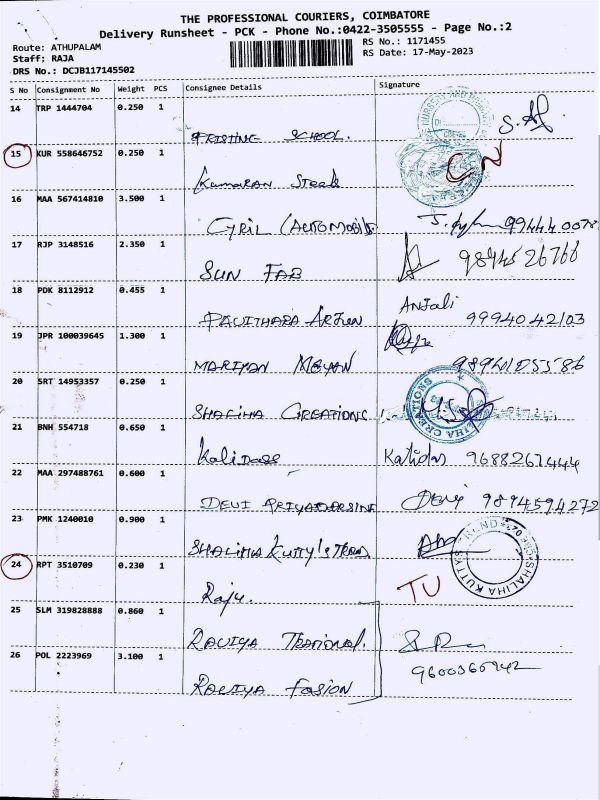 THE PROFESSIONAL COURIERS, COIMBATORE
Delivery Runsheet - PCK - Phone No.:0422-3505555 - Page No.:2
Route: ATHUPALAM
Staff: RAJA
DRS No.: DCJB117145502
RS No.: 1171455
RS Date: 17-May-2023
S No Consignment No Weight PCS Consignee Details Signature
14 TRP 1444704 0.250 1
SCHOOL.
15 KUR 558646752 0.250 1
Kumaran Steel
CN
16 MAA 567414810 3.500 1
CYRIL (AUTOMOBILE
17 RJP 3148516 2.350 1
SUN FAB 9894526766
18 PDK 8112912 0.455 1
PAVITHARA ARJUN Anjali 9994042103
19 JPR 100039645 1.300 1
MARIYAN
20 SRT 14953357 0.250 1
SHALIHA CREATIONS
21 BNH 554718 0.650 1
Kalidass Kalidas 9688267444
22 MAA 297488761 0.600 1
DEVI PRIYADARSINI Devi 9894594272
23 PMK 1240010 0.900 1
SHALIHA KUTTY'S TREND
24 RPT 3510709 0.230 1
Raju. TU
25 SLM 319828888 0.860 1
RAVIYA
26 POL 2223969 3.100 1
RAVIYA FASION